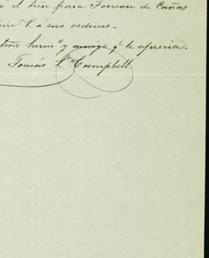 el tren para Torreon de Cañas
V. a sus ordenes.
herm.º y amigo q.º te aprecia.
Tomás Campbell